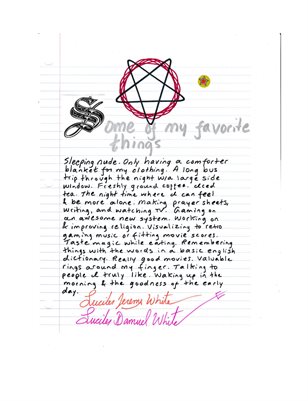 Some of my favorite
things
Sleeping nude. Only having a comforter
blanket for my clothing. A long bus
trip through the night w/a large side
window. Freshly ground coffee. Iced
tea. The night time where I can feel
& be more alone. Making prayer sheets,
writing, and watching TV. Gaming on
an awesome new system. Working on
& improving religion. Visualizing to retro
gaming music or fitting movie scores.
Taste magic while eating. Remembering
things with the words in a basic english
dictionary. Really good movies. Valuable
rings around my finger. Talking to
people I truly like. Waking up in the
morning & the goodness of the early
day.
Lucifer Jeremy White
Lucifer Damuel White